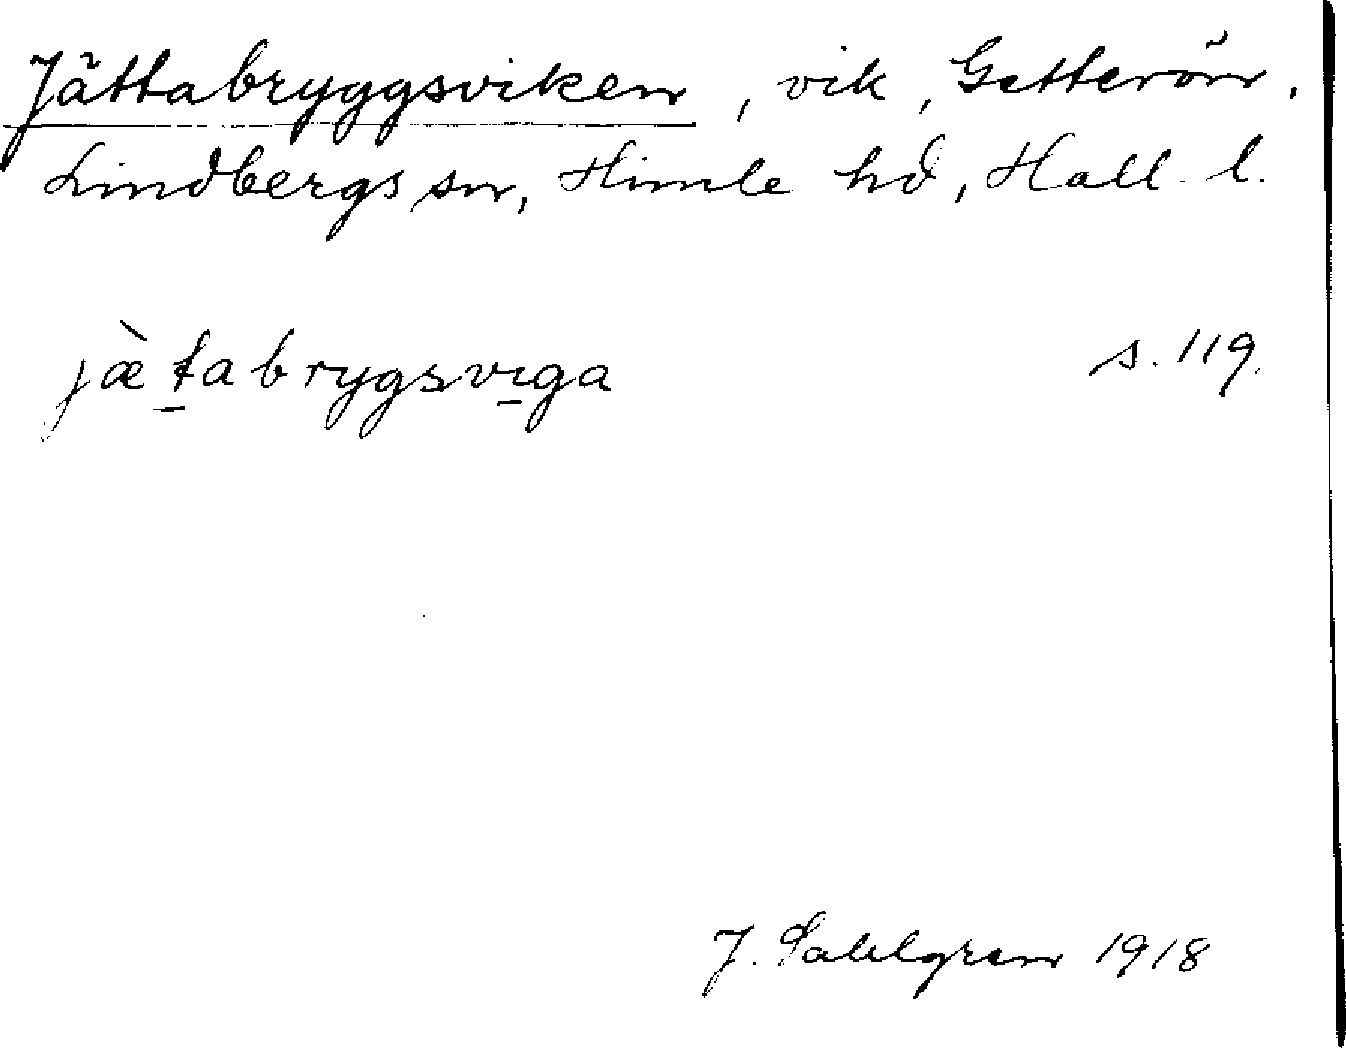 Jättabryggsviken, vik, Getterön,
Lindbergs sn, Himle hd, Hall. l.
jæ̀ṯabrygsvi̱ga s. 119.
J. Sahlgren 1918